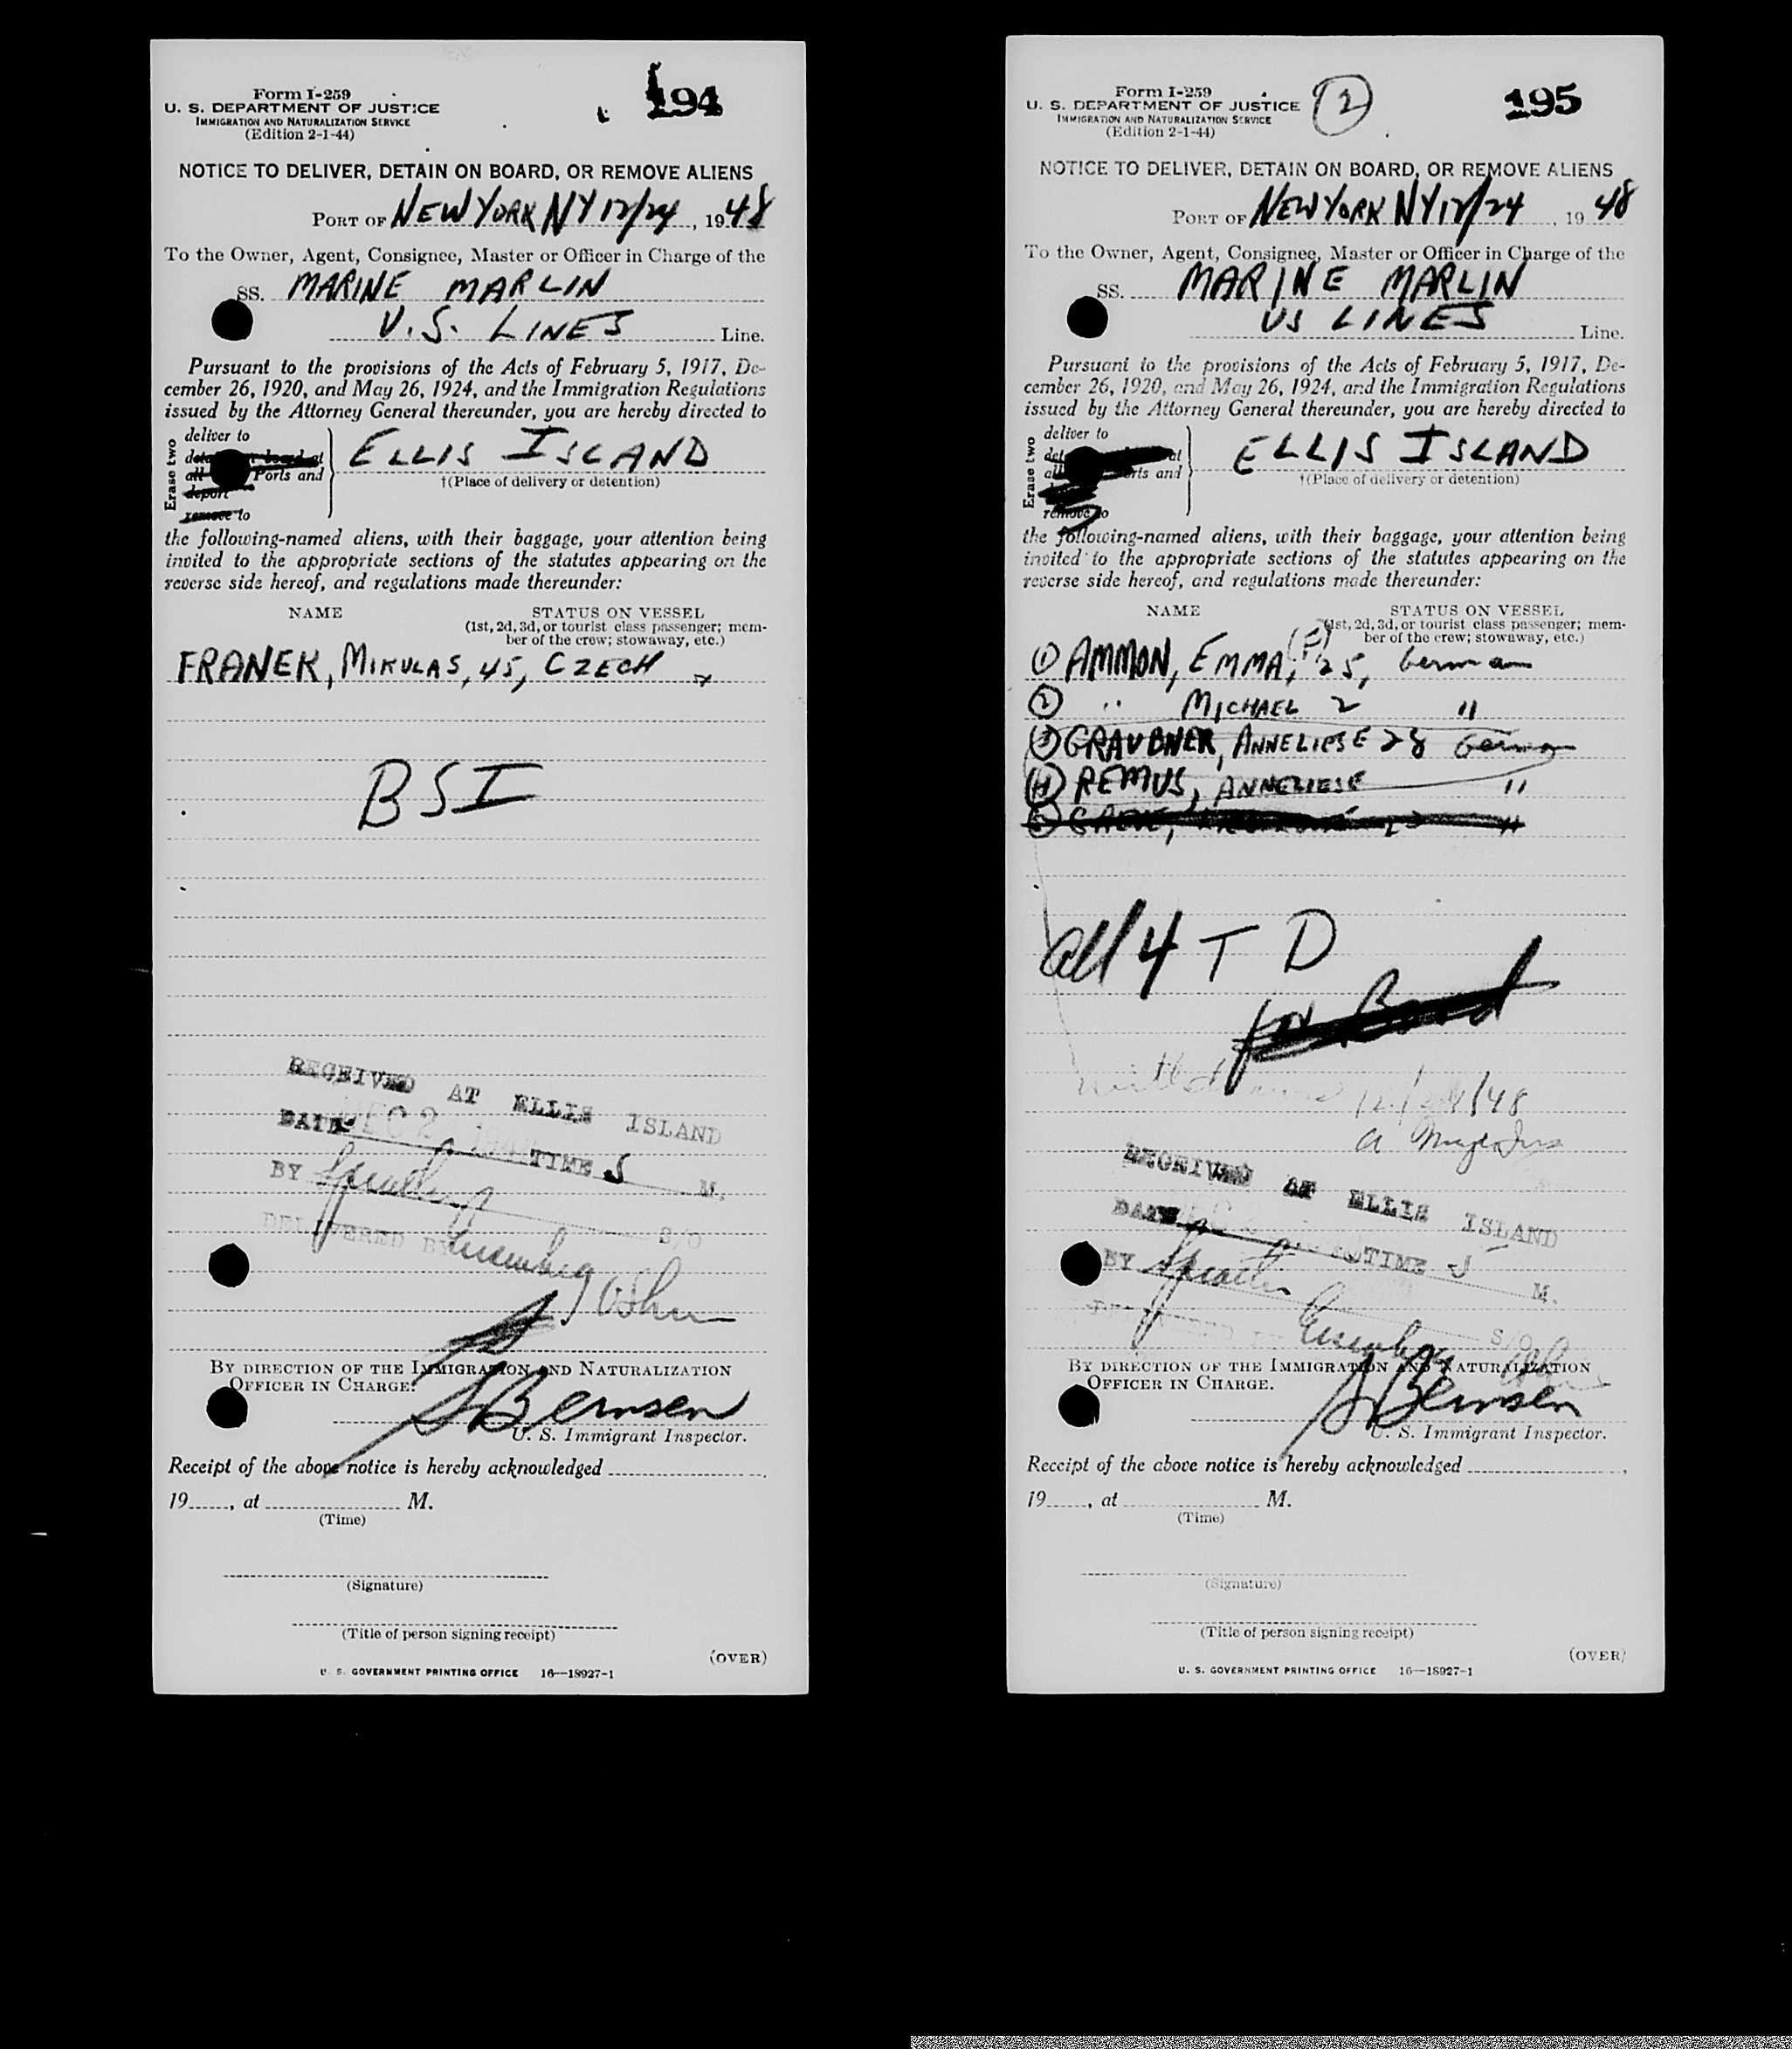 Form I-259
U. S. DEPARTMENT OF JUSTICE
IMMIGRATION AND NATURALIZATION SERVICE
(Edition 2-1-44)
194
NOTICE TO DELIVER, DETAIN ON BOARD, OR REMOVE ALIENS
PORT OF NEW YORK NY 12/24, 1948
To the Owner, Agent, Consignee, Master or Officer in Charge of the
SS. MARINE MARLIN
U.S. LINES Line.
Pursuant to the provisions of the Acts of February 5, 1917, De-
cember 26, 1920, and May 26, 1924, and the Immigration Regulations
issued by the Attorney General thereunder, you are hereby directed to
Erase two
deliver to
at
all Ports and
deport
remove to
ELLIS ISLAND
†(Place of delivery or detention)
the following-named aliens, with their baggage, your attention being
invited to the appropriate sections of the statutes appearing on the
reverse side hereof, and regulations made thereunder:
NAME STATUS ON VESSEL
(1st, 2d, 3d, or tourist class passenger; mem-
ber of the crew; stowaway, etc.)
FRANEK, MIKULAS, 45, CZECH
BSI
RECEIVED AT ELLIS ISLAND
DATE DEC 2 TIME M.
BY S/O
DELIVERED BY
BY DIRECTION OF THE IMMIGRATION AND NATURALIZATION
OFFICER IN CHARGE:
S Bernsen
U. S. Immigrant Inspector.
Receipt of the above notice is hereby acknowledged
19, at M.
(Time)
(Signature)
(Title of person signing receipt)
(OVER)
U. S. GOVERNMENT PRINTING OFFICE 16—18927-1
Form I-259
U. S. DEPARTMENT OF JUSTICE
IMMIGRATION AND NATURALIZATION SERVICE
(Edition 2-1-44)
2
195
NOTICE TO DELIVER, DETAIN ON BOARD, OR REMOVE ALIENS
PORT OF NEW YORK NY 12/24, 1948
To the Owner, Agent, Consignee, Master or Officer in Charge of the
SS. MARINE MARLIN
US LINES Line.
Pursuant to the provisions of the Acts of February 5, 1917, De-
cember 26, 1920, and May 26, 1924, and the Immigration Regulations
issued by the Attorney General thereunder, you are hereby directed to
Erase two
deliver to
at
Ports and
remove to
ELLIS ISLAND
†(Place of delivery or detention)
the following-named aliens, with their baggage, your attention being
invited to the appropriate sections of the statutes appearing on the
reverse side hereof, and regulations made thereunder:
NAME STATUS ON VESSEL
(1st, 2d, 3d, or tourist class passenger; mem-
ber of the crew; stowaway, etc.)
1 AMMON, EMMA, (F) 25, German
2 " MICHAEL 2 "
3 GRAUBNER, ANNELIESE 28 German
4 REMUS, ANNELIESE "
all 4 T D
for Bond
12/24/48
RECEIVED AT ELLIS ISLAND
DATE TIME M.
BY S/O
BY DIRECTION OF THE IMMIGRATION AND NATURALIZATION
OFFICER IN CHARGE.
S Bernsen
U. S. Immigrant Inspector.
Receipt of the above notice is hereby acknowledged
19, at M.
(Time)
(Signature)
(Title of person signing receipt)
(OVER)
U. S. GOVERNMENT PRINTING OFFICE 16—18927-1